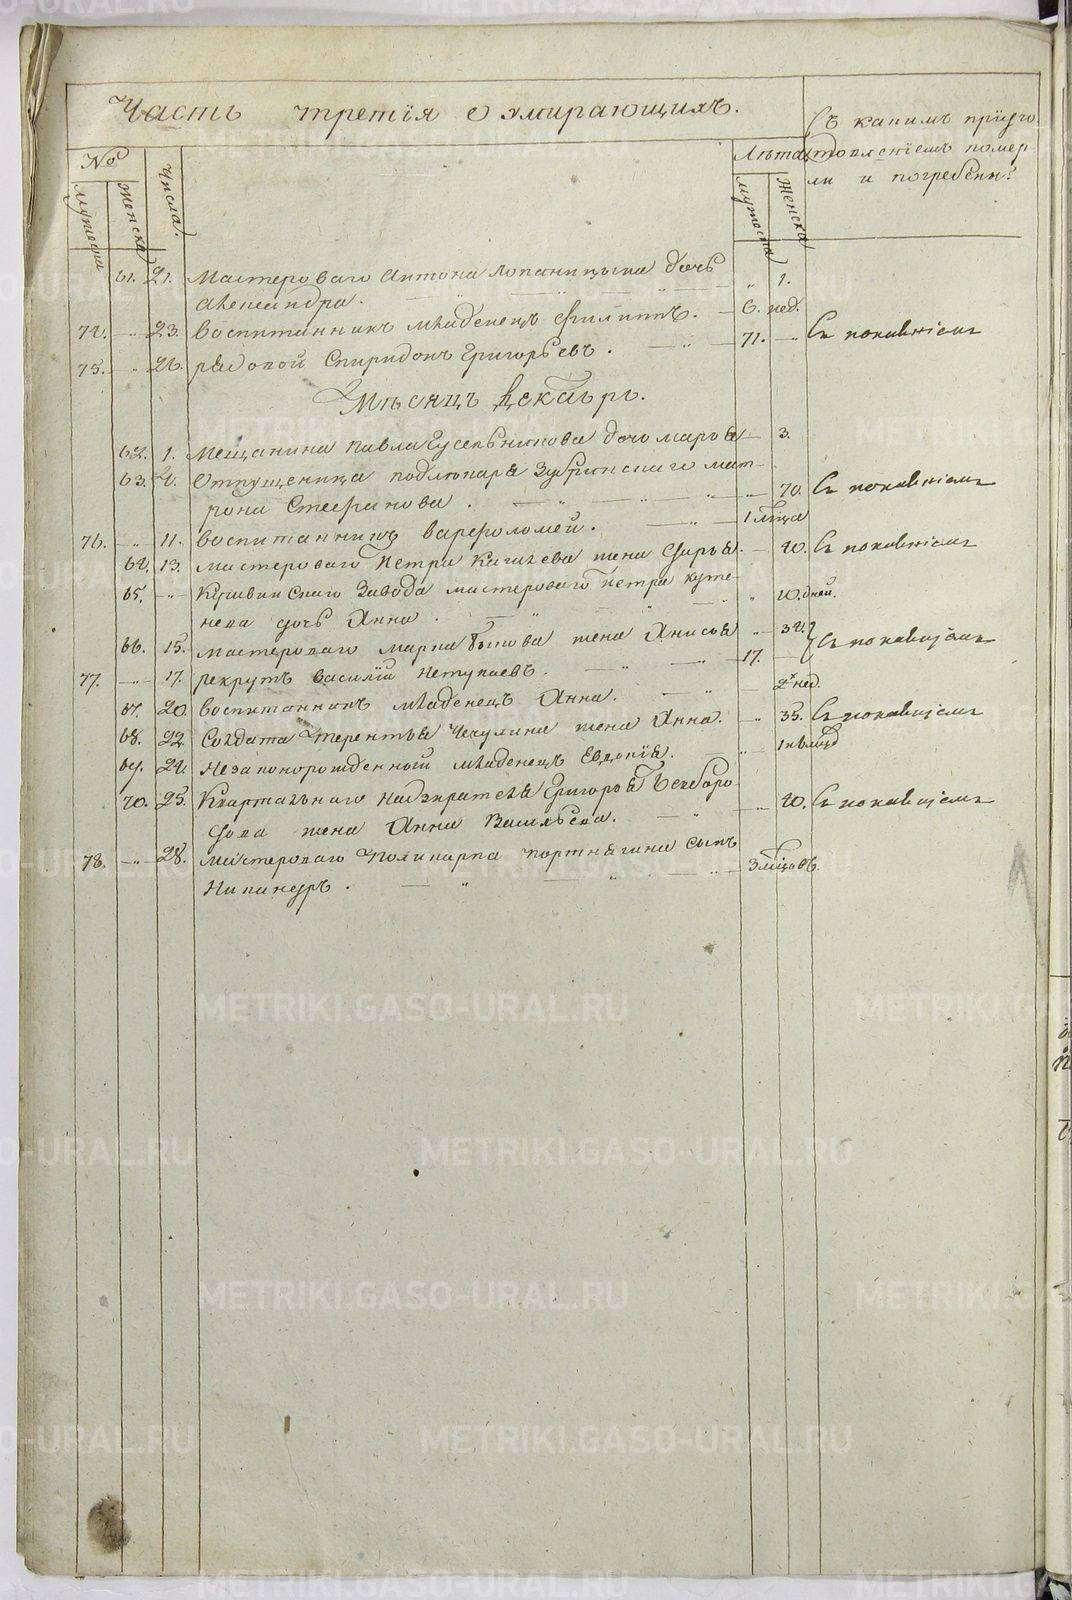 Часть третія о умирающихъ.
Съ какимъ пріуго
товленіемъ помер
ли и погребены?
№
Числа.
Лѣта
Мужеска
Женска
Мужеска
Женска
61. 21. Мастероваго Антона Лопаницына дочь „ 1.
Александра.
74. „ 23. Воспитанникъ младенецъ Филиппъ. 6. нед.
75. „ 26. рядовой Спиридонъ Григорьевъ. 71. „ Съ покаяніемъ
Мѣсяцъ Декабрь.
62. 1. Мещанина Павла Гусельникова дочь Марья 3.
63. 4. Отпущеница подлюкаря Зубринскаго Мат-
рона Стефанова. „ 70. Съ покаяніемъ
76. „ 11. Воспитанникъ Варфоломей. 1 мца
64. 13. Мастероваго Петра Качаева жена Дарья. 40. Съ покаяніемъ
65. „ Кушвинскаго Завода мастероваго Петра Куте-
нева дочь Анна. „ 10. дней.
66. 15. Мастероваго Марка Быкова жена Анисья „ 34. Съ покаяніемъ
77. „ 17. рекрутъ Василій Нетупаевъ. 17.
67. 20. Воспитанникъ младенецъ Анна. 2х нед.
68. 22. Солдата Терентья Чекулина жена Анна. „ 35. Съ покаяніемъ
69. 24. Незаконорожденный младенецъ Евдокія. „
70. 25. Квартальнаго надзирателя Григорья Безборо-
дова жена Анна Васильева. „ 40. Съ покаяніемъ
78. „ 28. Мастероваго Поликарпа Портнягина сынъ 3 мцовъ.
Никаноръ.
METRIKI.GASO-URAL.RU